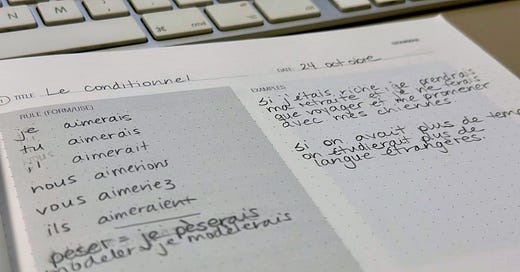 TITLE Le conditionnel
DATE 24 octobre
RULE (FORM/USE)
je aimerais
tu aimerais
il aimerait
nous aimerions
vous aimeriez
ils aimeraient
peser = je pèserais
modeler, je modèlerais
EXAMPLES
Si j'étais riche, je prendrais
ma retraite et je ne ferais
que voyager et me promener
avec mes chiennes
Si on avait plus de
on étudierait plus de
langue étrangères.